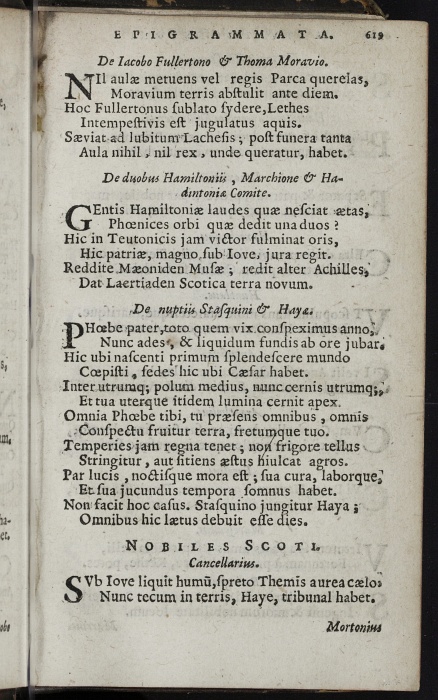 EPIGRAMMATA. 619
De Iacobo Fullertono & Thoma Moravio.
NIl aulæ metuens vel regis Parca querelas,
Moravium terris abſtulit ante diem.
Hoc Fullertonus ſublato ſydere, Lethes
Intempeſtivis eſt jugulatus aquis.
Sæviat ad lubitum Lacheſis; poſt funera tanta
Aula nihil, nil rex, unde queratur, habet.
De duobus Hamiltoniis, Marchione & Ha-
dintoniæ Comite.
GEntis Hamiltoniæ laudes quæ neſciat ætas,
Phœnices orbi quæ dedit una duos?
Hic in Teutonicis jam victor fulminat oris,
Hic patriæ, magno ſub Iove, jura regit.
Reddite Mæoniden Muſæ; redit alter Achilles,
Dat Laertiaden Scotica terra novum.
De nuptiis Staſquini & Hayæ.
PHœbe pater, toto quem vix conſpeximus anno,
Nunc ades, & liquidum fundis ab ore jubar.
Hic ubi naſcenti primum ſplendeſcere mundo
Cœpiſti, ſedes hic ubi Cæſar habet.
Inter utrumq; polum medius, nunc cernis utrumq;,
Et tua uterque itidem lumina cernit apex.
Omnia Phœbe tibi, tu præſens omnibus, omnis
Conſpectu fruitur terra, fretumque tuo.
Temperies jam regna tenet; non frigore tellus
Stringitur, aut ſitiens æſtus hiulcat agros.
Par lucis, noctiſque mora eſt; ſua cura, laborque,
Et ſua jucundus tempora ſomnus habet.
Non facit hoc caſus. Staſquino jungitur Haya;
Omnibus hic lætus debuit eſſe dies.
NOBILES SCOTI.
Cancellarius.
SVb Iove liquit humū, ſpreto Themis aurea cælo:
Nunc tecum in terris, Haye, tribunal habet.
Mortonius